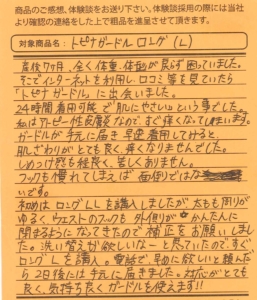 商品のご感想、体験談をお送り下さい。体験談採用の際には当社
より確認の連絡をした上で粗品を進呈させて頂きます。
対象商品名:トピナガードル ロング(L)
産後7ヶ月、全く体重・体型が戻らず困っていました。
そこでインターネットを利用し、口コミ等を見ていたら
「トピナガードル」に出会いました。
24時間着用可能で「肌にやさしい」という事でした。
私はアトピー性皮膚炎なので、すぐ痒くなってしまいます。
ガードルが手元に届き早速着用してみると、
肌ざわりがとても良く、痒くなりませんでした。
しめつけ感も程良く、苦しくありません。
フックも慣れてしまえば面倒ではな
いです。
初めはロングLLを購入しましたが太もも周りが
ゆるく、ウエストのフックも外側がかんたんに
閉まるようになってきたので補正をお願いしまし
た。洗い替えが欲しいなーと思っていたのですぐ
ロングLを購入。電話で、早めに欲しいと頼んだ
ら2日後には手元に届きました。対応がとても
良く、気持ち良くガードルを使えます!!